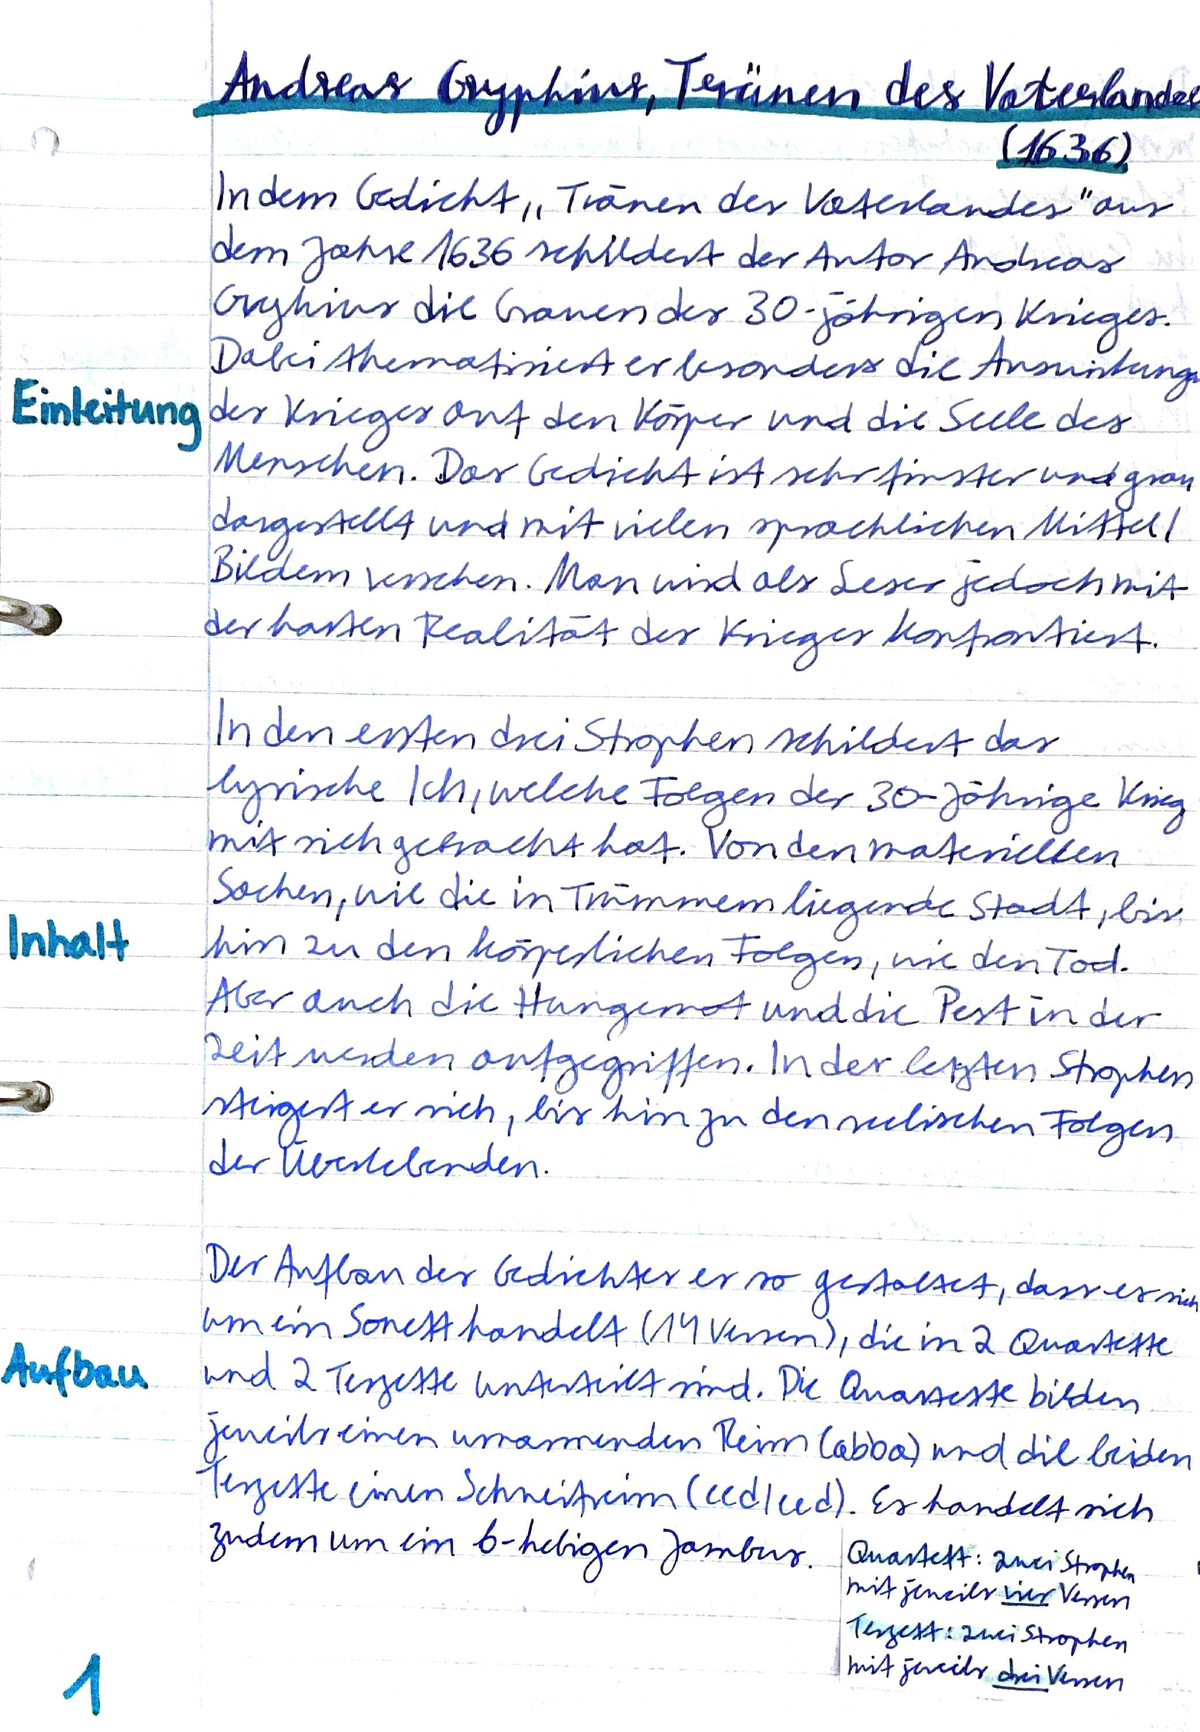 Andreas Gryphius, Teränen des Vaterlandes
(1636)
In dem Gedicht „Tränen des Vaterlandes" aus
dem Jahre 1636 schildert der Autor Andreas
Gryhius die Grauen des 30-jährigen Krieges.
Dabei thematisiert er besonders die Auswirkung
Einleitung
des Krieges auf den Körper und die Seele des
Menschen. Das Gedicht ist sehr finster und grau
dargestellt und mit vielen sprachlichen Mittel/
Bildern versehen. Man wird als Leser jedoch mit
der harten Realität des Krieges konfrontiert.
In den ersten drei Strophen schildert das
lyrische Ich, welche Folgen der 30-Jährige Krieg
mit sich gebracht hat. Von den materiellen
Sachen, wie die in Trümmern liegende Stadt, bis
Inhalt
hin zu den körperlichen Folgen, wie den Tod.
Aber auch die Hungernot und die Pest in der
Zeit werden aufgegriffen. In der letzten Strophen
steigert er sich, bis hin zu den seelischen Folgen
der Überlebenden.
Der Aufbau des Gedichtes er so gestaltet, dass es sich
um ein Sonett handelt (14 Versen), die in 2 Quartette
Aufbau
und 2 Terzette unterteilt sind. Die Quartette bilden
jeweils einen umarmenden Reim (abba) und die beiden
Terzette einen Schweifreim (ccd/eed). Es handelt sich
zudem um ein 6-hebigen Jambus.
Quartett: zwei Strophen
mit jeweils vier Versen
Terzett: zwei Strophen
mit jeweils drei Versen
1